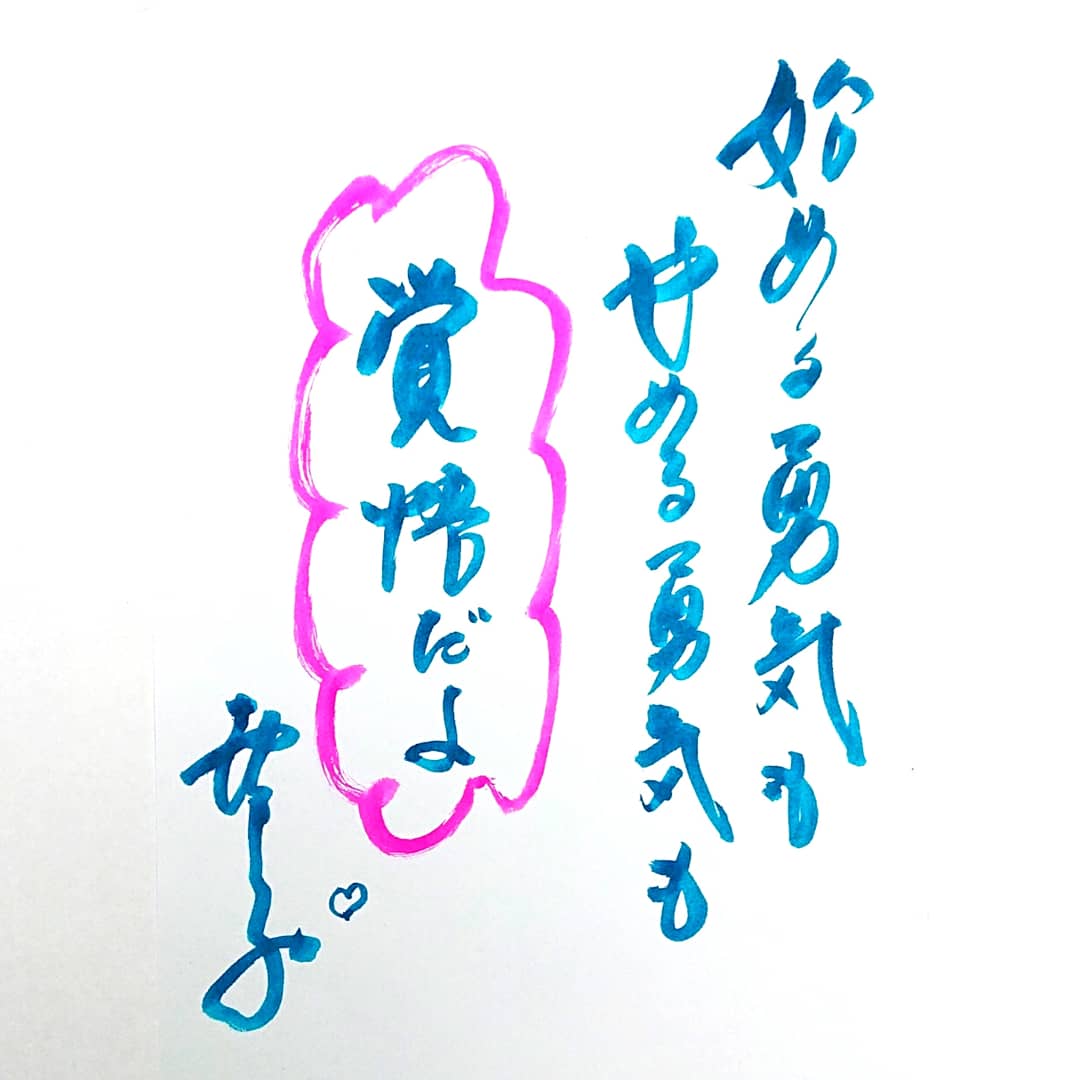 始める勇気も
やめる勇気も
覚悟だよ